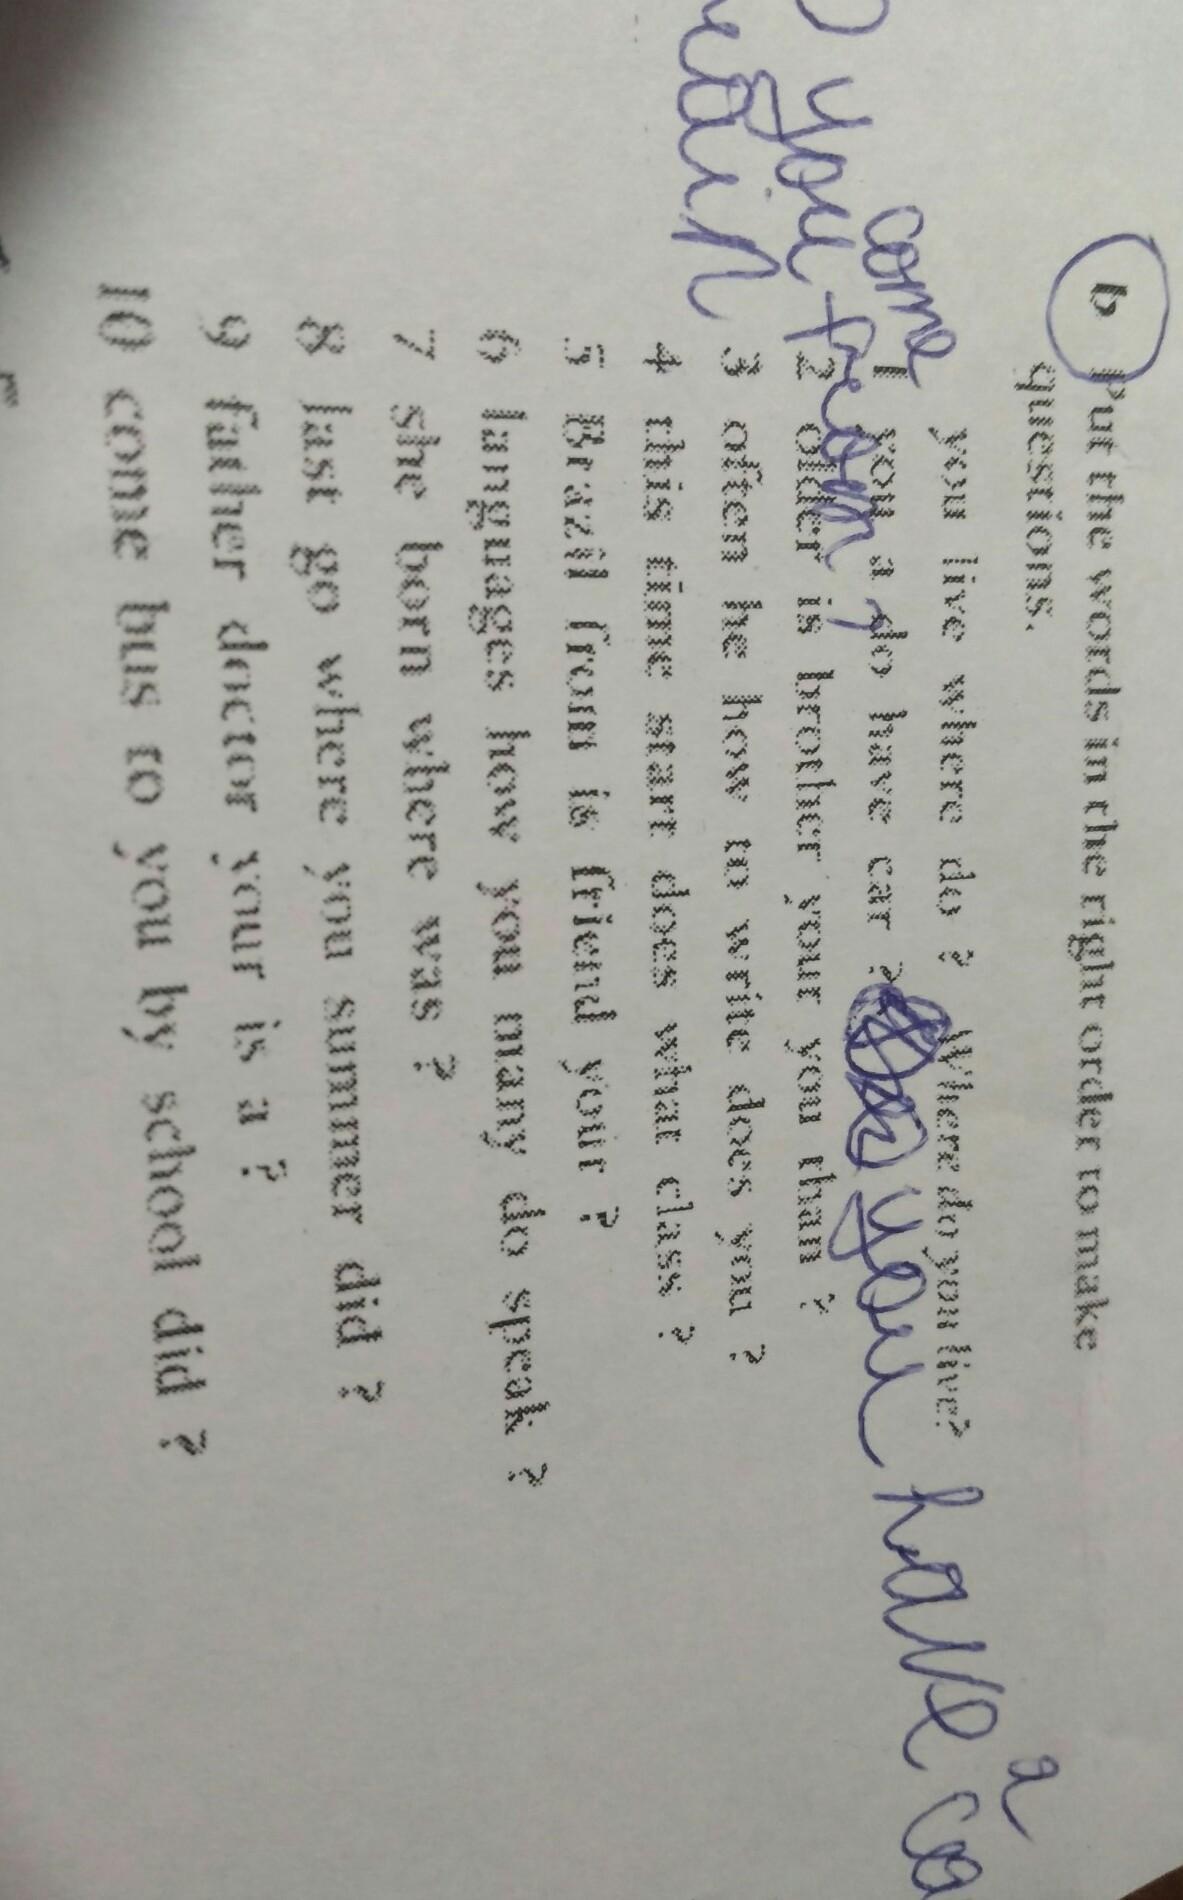 b Put the words in the right order to make
questions.
you live where do ? Where do you live?
come
1 you a do have car ? you have a ca
you from ?
2 older is brother your you than ?
3 often he how to write does you ?
4 this time start does what class ?
5 Brazil from is friend your ?
6 languages how you many do speak ?
7 she born where was ?
8 last go where you summer did ?
9 father doctor your is a ?
10 come bus to you by school did ?